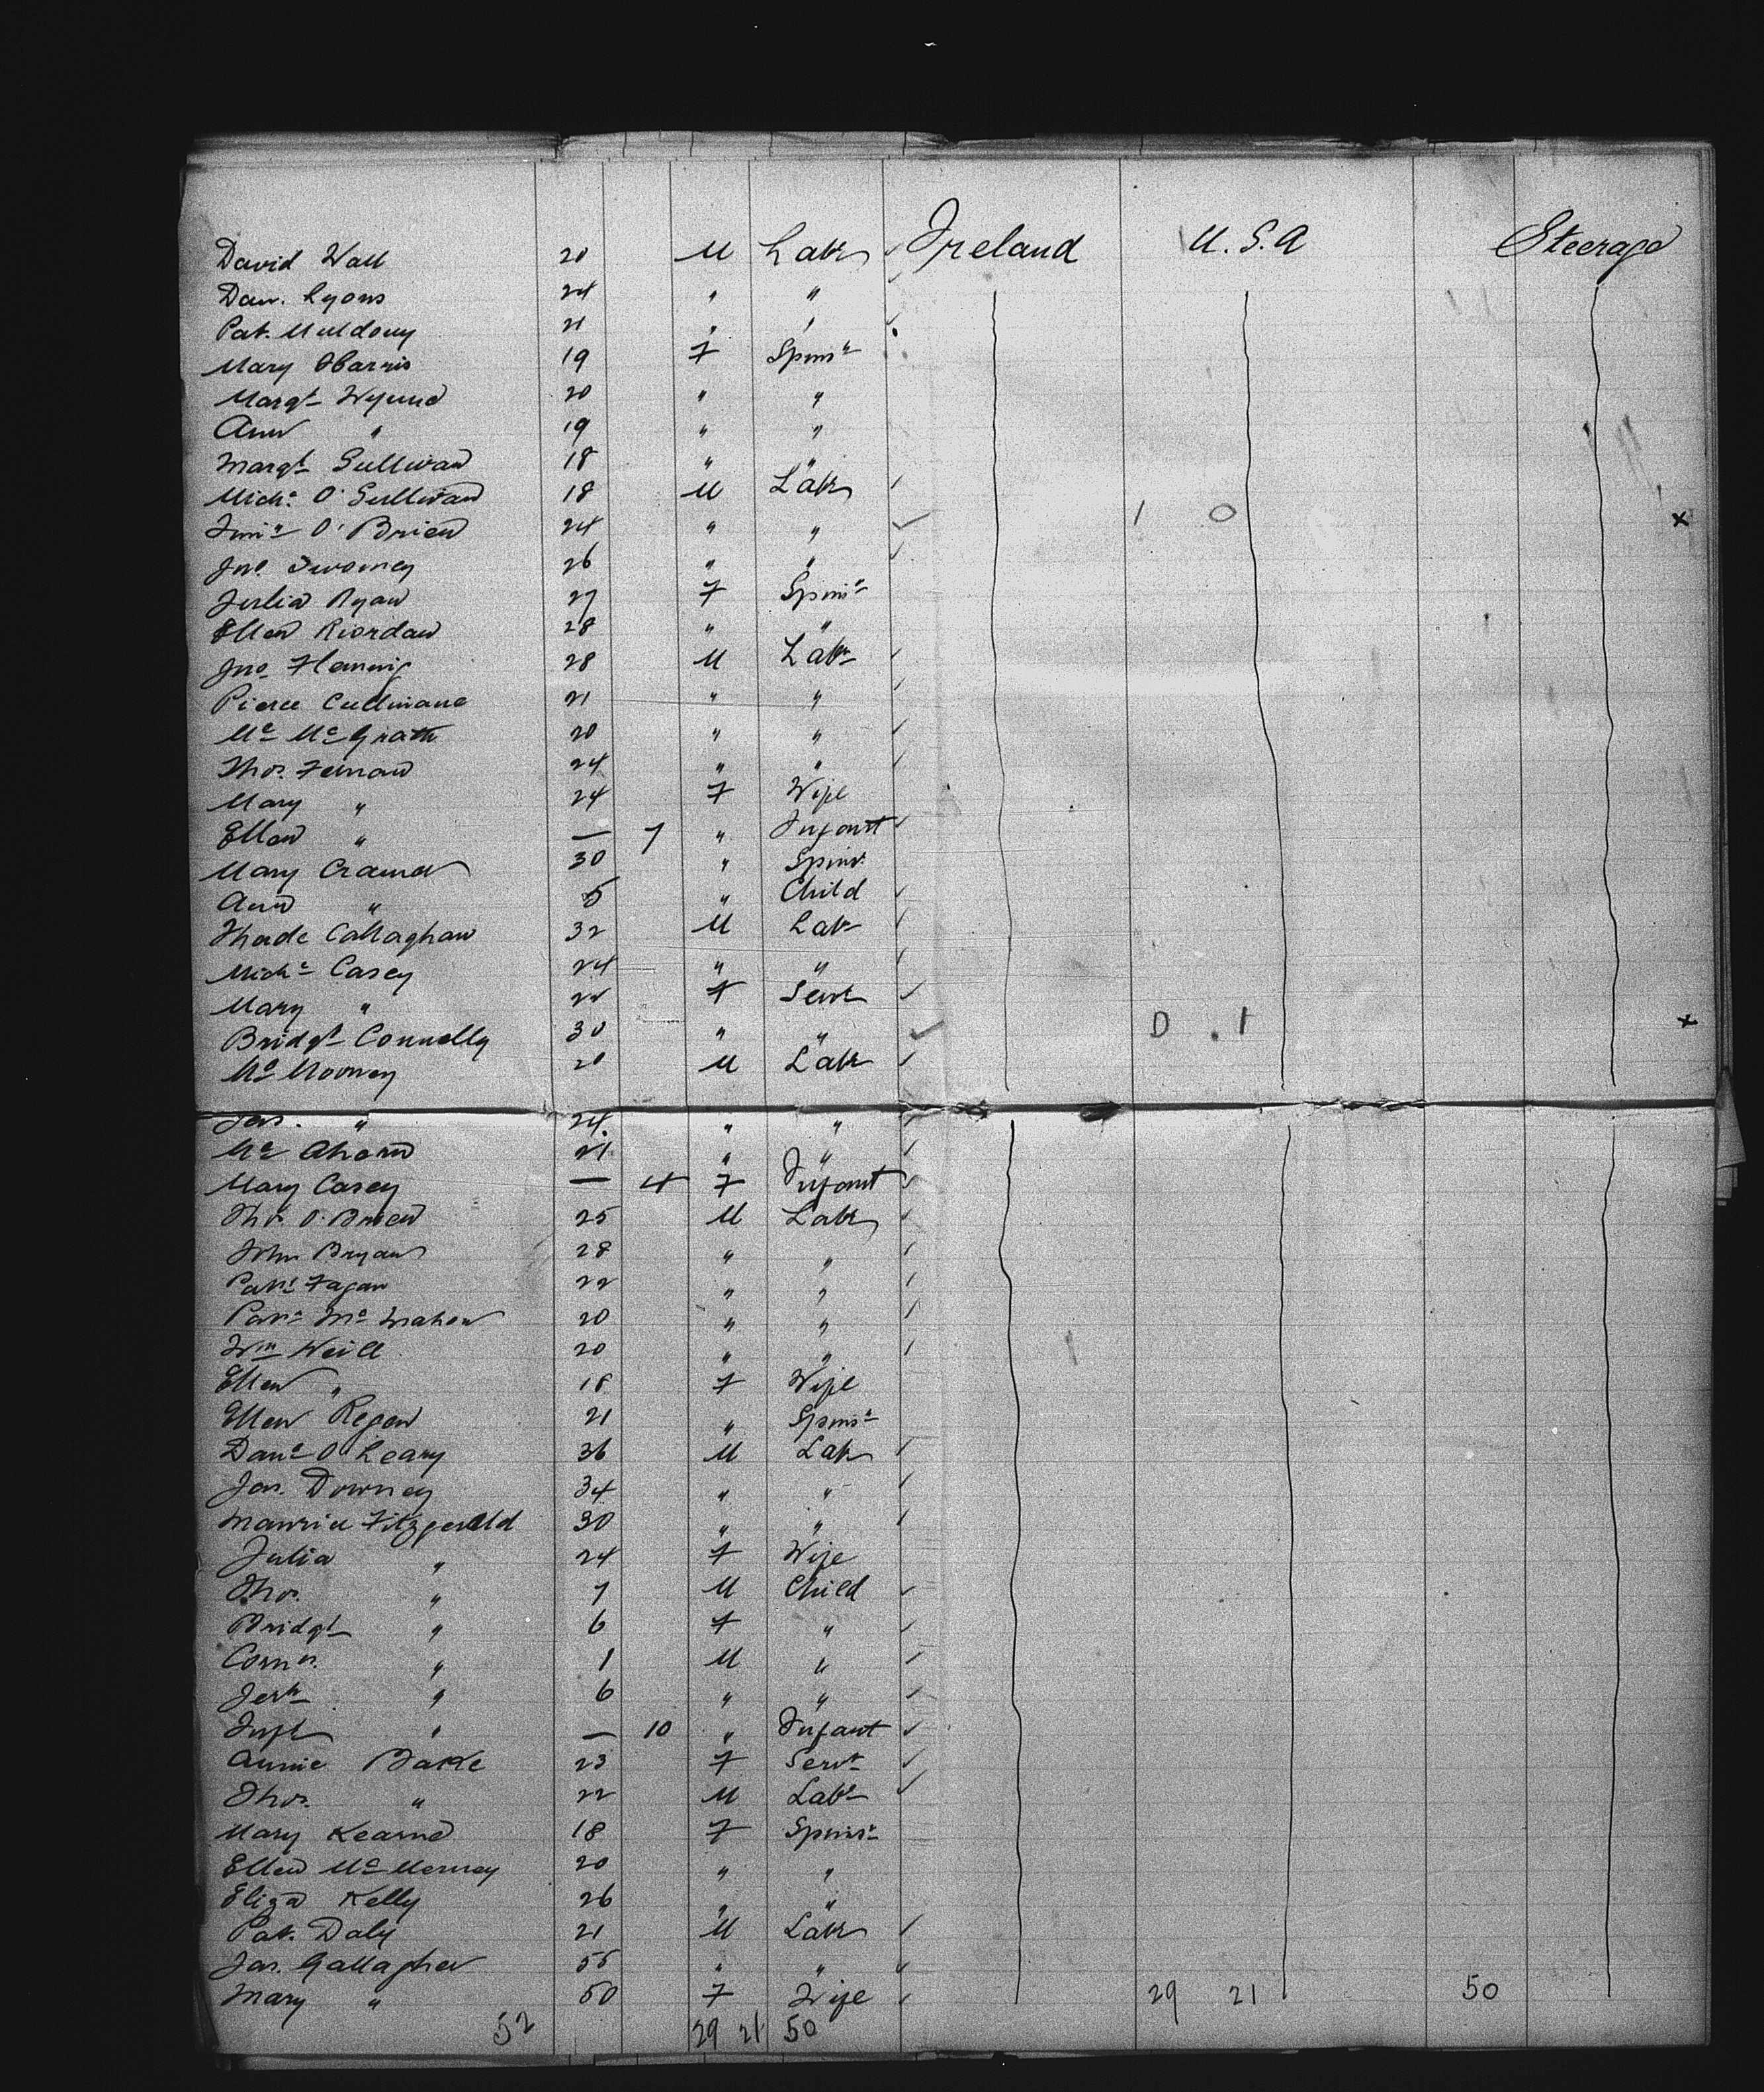 David Wall 20 M Labr Ireland U.S.A Steerage
Dan. Lyons 24 " "
Pat. Muldony 21 " "
Mary Harris 19 F Spinsr
Margt Wynne 20 " "
Ann " 19 " "
Margt Sullivan 18 " "
Michl O'Sullivan 18 M Labr
O'Brien 24 " " 1 0 x
Jno. Twomey 26 " "
Julia Ryan 27 F Spinsr
Ellen Riordan 28 " "
Jno Fleming 28 M Labr
Pierce Cullinane 21 " "
McGrath 20 " "
Thos. 24 " "
Mary " 24 F Wife
Ellen " — 7 " Infant
Mary 30 " Spinr
Ann " 5 " Child
Thade Callaghan 32 M Labr
Michl Casey 24 " "
Mary " 22 F Servt
Bridgt Connelly 30 " " 0 1 x
Mooney 20 M Labr
Jas. " 24 " "
Ahern 21 " "
Mary Casey — 4 F Infant
Thos O'Brien 25 M Labr
John Bryan 28 " "
Patk Fagan 22 " "
Patk McMahon 20 " "
Wm Neill 20 " "
Ellen " 18 F Wife
Ellen Regan 21 " Spinsr
Danl O'Leary 36 M Labr
Jas. Downey 34 " "
Maurice Fitzgerald 30 " "
Julia " 24 F Wife
Thos. " 7 M Child
Bridgt " 6 F "
Corns. " 1 M "
Jerh " 6 " "
Inft " — 10 " Infant
Annie 23 F Servt
Thos. " 22 M Labr
Mary Kearne 18 F Spinsr
Ellen 20 " "
Eliza Kelly 26 " "
Pat. Daly 21 M Labr
Jas. Gallagher 55 " "
Mary " 50 F Wife 29 21 50
52 29 21 50